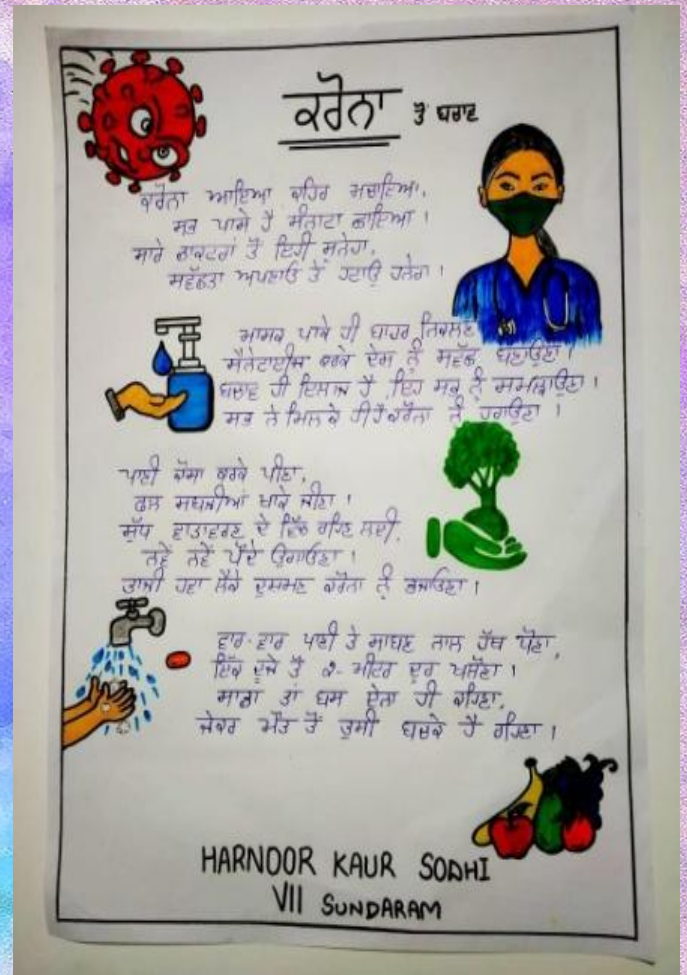 ਕਰੋਨਾ ਤੋਂ ਬਚਾਵ
ਕਰੋਨਾ ਆਇਆ ਕਹਿਰ ਮਚਾਇਆ,
ਸਭ ਪਾਸੇ ਹੈ ਸੰਨਾਟਾ ਛਾਇਆ ।
ਸਾਰੇ ਡਾਕਟਰਾਂ ਤੋਂ ਇਹੀ ਸੁਨੇਹਾ,
ਸਵੱਛਤਾ ਅਪਣਾਓ ਤੇ ਹਟਾਉ ਹਨੇਰਾ ।
ਮਾਸਕ ਪਾਕੇ ਹੀ ਬਾਹਰ ਨਿਕਲਣਾ
ਸੈਨੇਟਾਈਜ਼ ਕਰਕੇ ਦੇਸ਼ ਨੂੰ ਸਵੱਛ ਬਣਾਉਣਾ ।
ਬਚਾਵ ਹੀ ਇਲਾਜ ਹੈ ,ਇਹ ਸਭ ਨੂੰ ਸਮਝਾਉਣਾ ।
ਸਭ ਨੇ ਮਿਲਕੇ ਹੀ ਹੈ ਕਰੋਨਾ ਨੂੰ ਹਰਾਉਣਾ ।
ਪਾਣੀ ਕੋਸਾ ਕਰਕੇ ਪੀਣਾ,
ਫਲ ਸਬਜ਼ੀਆਂ ਖਾਕੇ ਜੀਣਾ ।
ਸ਼ੁੱਧ ਵਾਤਾਵਰਣ ਦੇ ਵਿੱਚ ਰਹਿਣ ਲਈ,
ਨਵੇਂ ਨਵੇਂ ਪੌਦੇ ਉਗਾਉਣਾ ।
ਤਾਜ਼ੀ ਹਵਾ ਲੈਕੇ ਦੁਸ਼ਮਣ ਕਰੋਨਾ ਨੂੰ ਭਜਾਉਣਾ ।
ਵਾਰ-ਵਾਰ ਪਾਣੀ ਤੇ ਸਾਬਣ ਨਾਲ ਹੱਥ ਧੋਣਾ,
ਇੱਕ ਦੂਜੇ ਤੋਂ ੨-ਮੀਟਰ ਦੂਰ ਖਲੋਣਾ ।
ਸਾਡਾ ਤਾਂ ਬਸ ਏਨਾ ਹੀ ਕਹਿਣਾ,
ਜੇਕਰ ਮੌਤ ਤੋਂ ਤੁਸੀ ਬਚਕੇ ਹੈ ਰਹਿਣਾ ।
HARNOOR KAUR SODHI
VII SUNDARAM